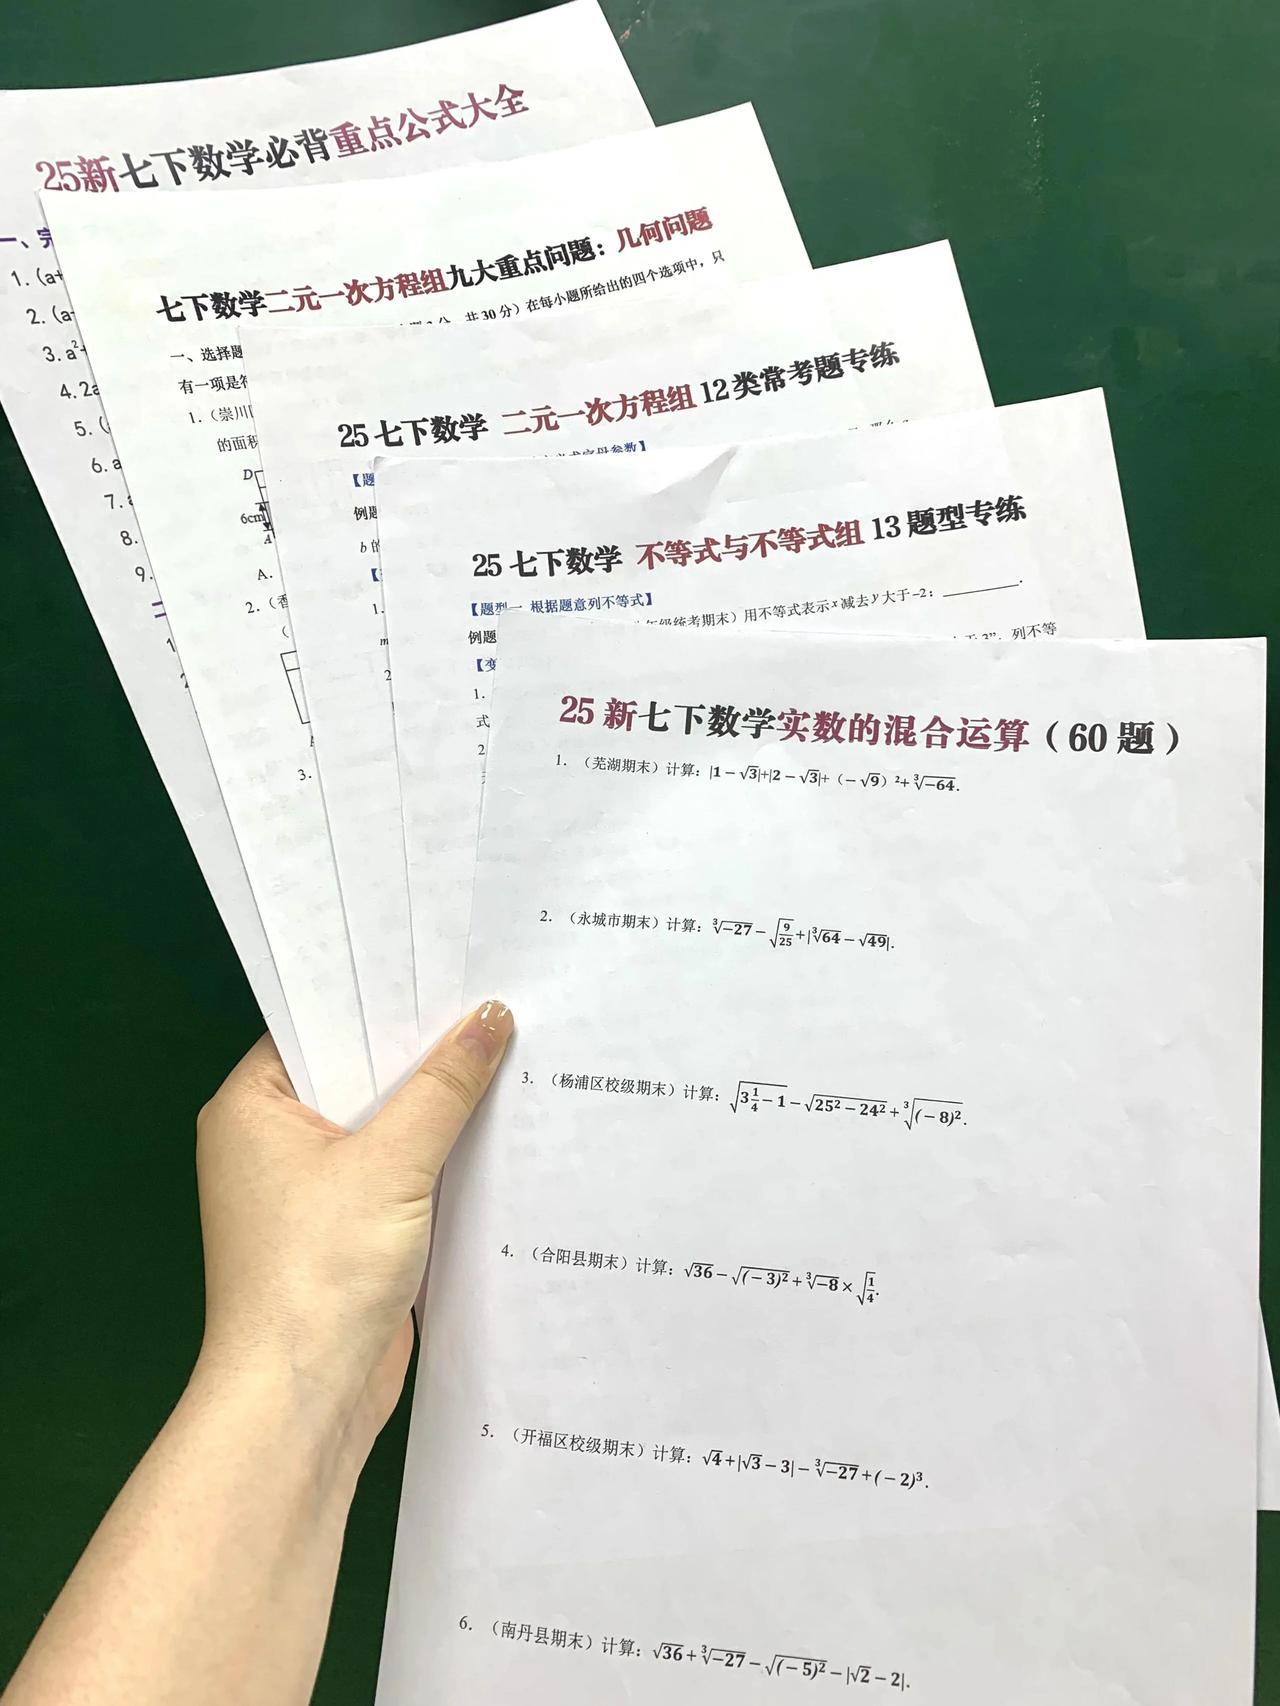 25新七下数学必背重点公式大全
一、完
1. (a+
2. (a
3. a²+
4. 2a
5. (
6. a
7.
8.
9.
七下数学二元一次方程组九大重点问题：几何问题
共30分）在每小题所给出的四个选项中，只
一、选择题
有一项是符
1.（崇川
的面积
D
6cm
A
A.
2.（香
（
3.
25 七下数学 二元一次方程组 12 类常考题专练
【题
例题
b 的
【
1.
m
2
25 七下数学 不等式与不等式组 13 题型专练
【题型一 根据题意列不等式】
例题 年级统考期末）用不等式表示 x 减去 y 大于 -2：________.
【变 3”，列不等
1.
式
2
25 新七下数学实数的混合运算（60 题）
1. （芜湖期末）计算：|1－√3|+|2－√3|+（－√9）²+∛-64.
2. （永城市期末）计算：∛-27－√(9/25)+|∛64－√49|.
3. （杨浦区校级期末）计算：√(3 1/4－1)－√(25²－24²)+∛((－8)²).
4. （合阳县期末）计算：√36－√((－3)²)+∛-8×√(1/4).
5. （开福区校级期末）计算：√4+|√3－3|－∛-27+(－2)³.
6. （南丹县期末）计算：√36+∛-27－√((－5)²)－|√2－2|.